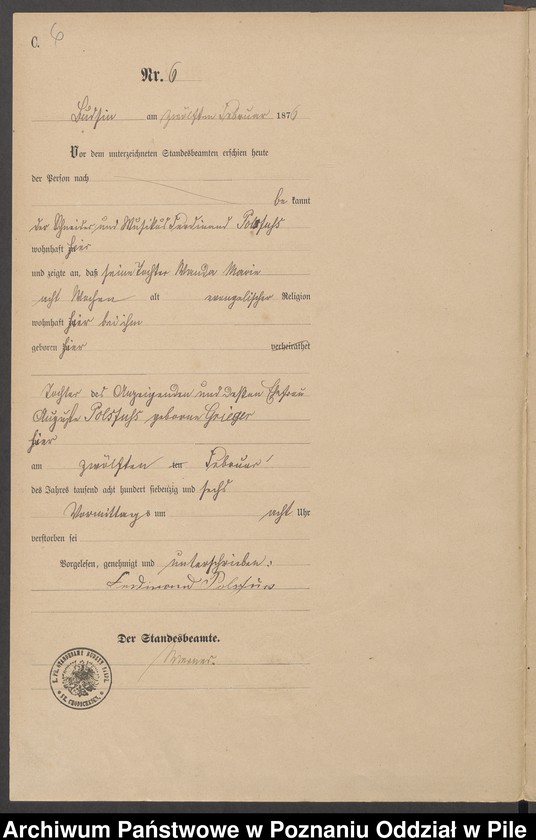 C. 6
Nr. 6
Budsin am zwölften Februar 1876
Vor dem unterzeichneten Standesbeamten erschien heute
der Person nach
be kannt
der Schneider und Musikus Ferdinand Polsfuhs
wohnhaft hier
und zeigte an, daß seine Tochter Wanda Marie
acht Wochen alt evangelischer Religion
wohnhaft hier bei ihm
geboren hier verheirathet
Tochter des Anzeigenden und dessen Ehefrau
Auguste Polsfuhs geborne Grieger
hier
am zwölften ten Februar
des Jahres tausend acht hundert siebenzig und sechs
Vormittags um acht Uhr
verstorben sei
Vorgelesen, genehmigt und unterschrieben:
Ferdinand Polsfus
Der Standesbeamte.
Archiwum Państwowe w Poznaniu Oddział w Pile